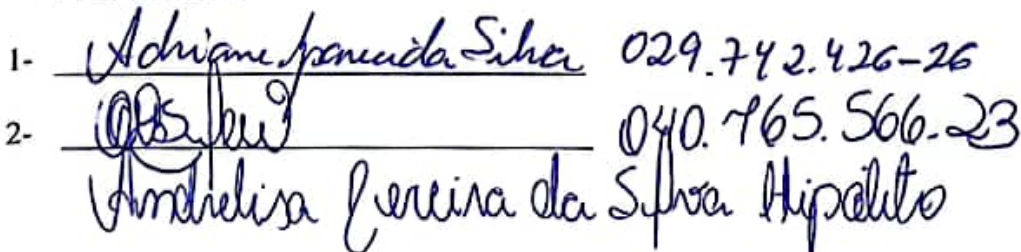 1- Adriane Aparecida Silva 029.742.426-26
2- 040.765.566-23
Andrelisa Pereira da Silva Hipólito